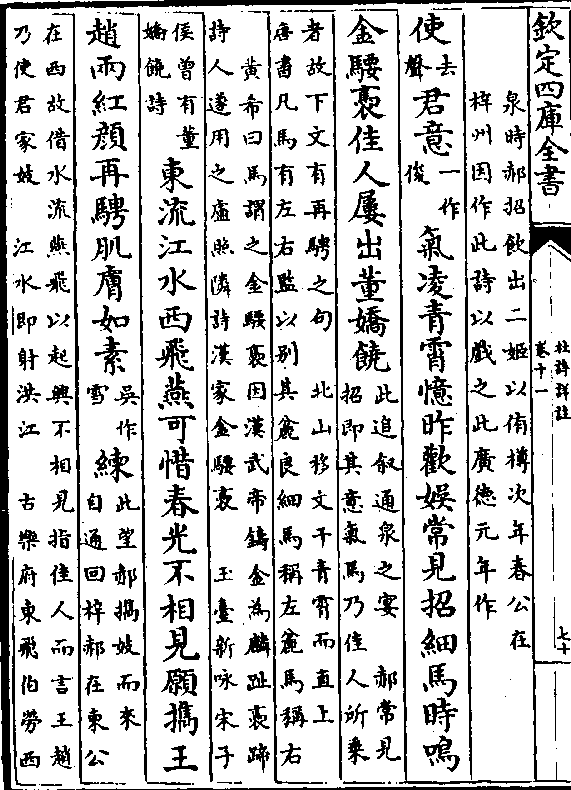 欽定四庫全書
杜詩詳註
卷十一
七十
泉時郝招飲出二姬以侑樽次年春公在
梓州因作此詩以戲之此廣德元年作
使去聲君意一作俊氣凌青霄憶昨歡娛常見招細馬時鳴
金騕褭佳人屢出董嬌饒此追叙通泉之宴 郝常見招即其意氣馬乃佳人所乗
者故下文有再騁之句 北山移文干青霄而直上
唐書凡馬有左右監以别其麄良細馬稱左麄馬稱右
黄希曰馬謂之金騕褭因漢武帝鑄金為麟趾褭蹄
詩人遂用之盧照隣詩漢家金騕褭 玉臺新咏宋子
侯曾有董嬌饒詩 東流江水西飛燕可惜春光不相見願攜王
趙兩紅顔再騁肌膚如素吳作雪練此望郝攜妓而來 自通回梓郝在東公
在西故借水流燕飛以起興不相見指佳人而言王趙
乃使君家妓 江水即射洪江 古樂府東飛伯勞西